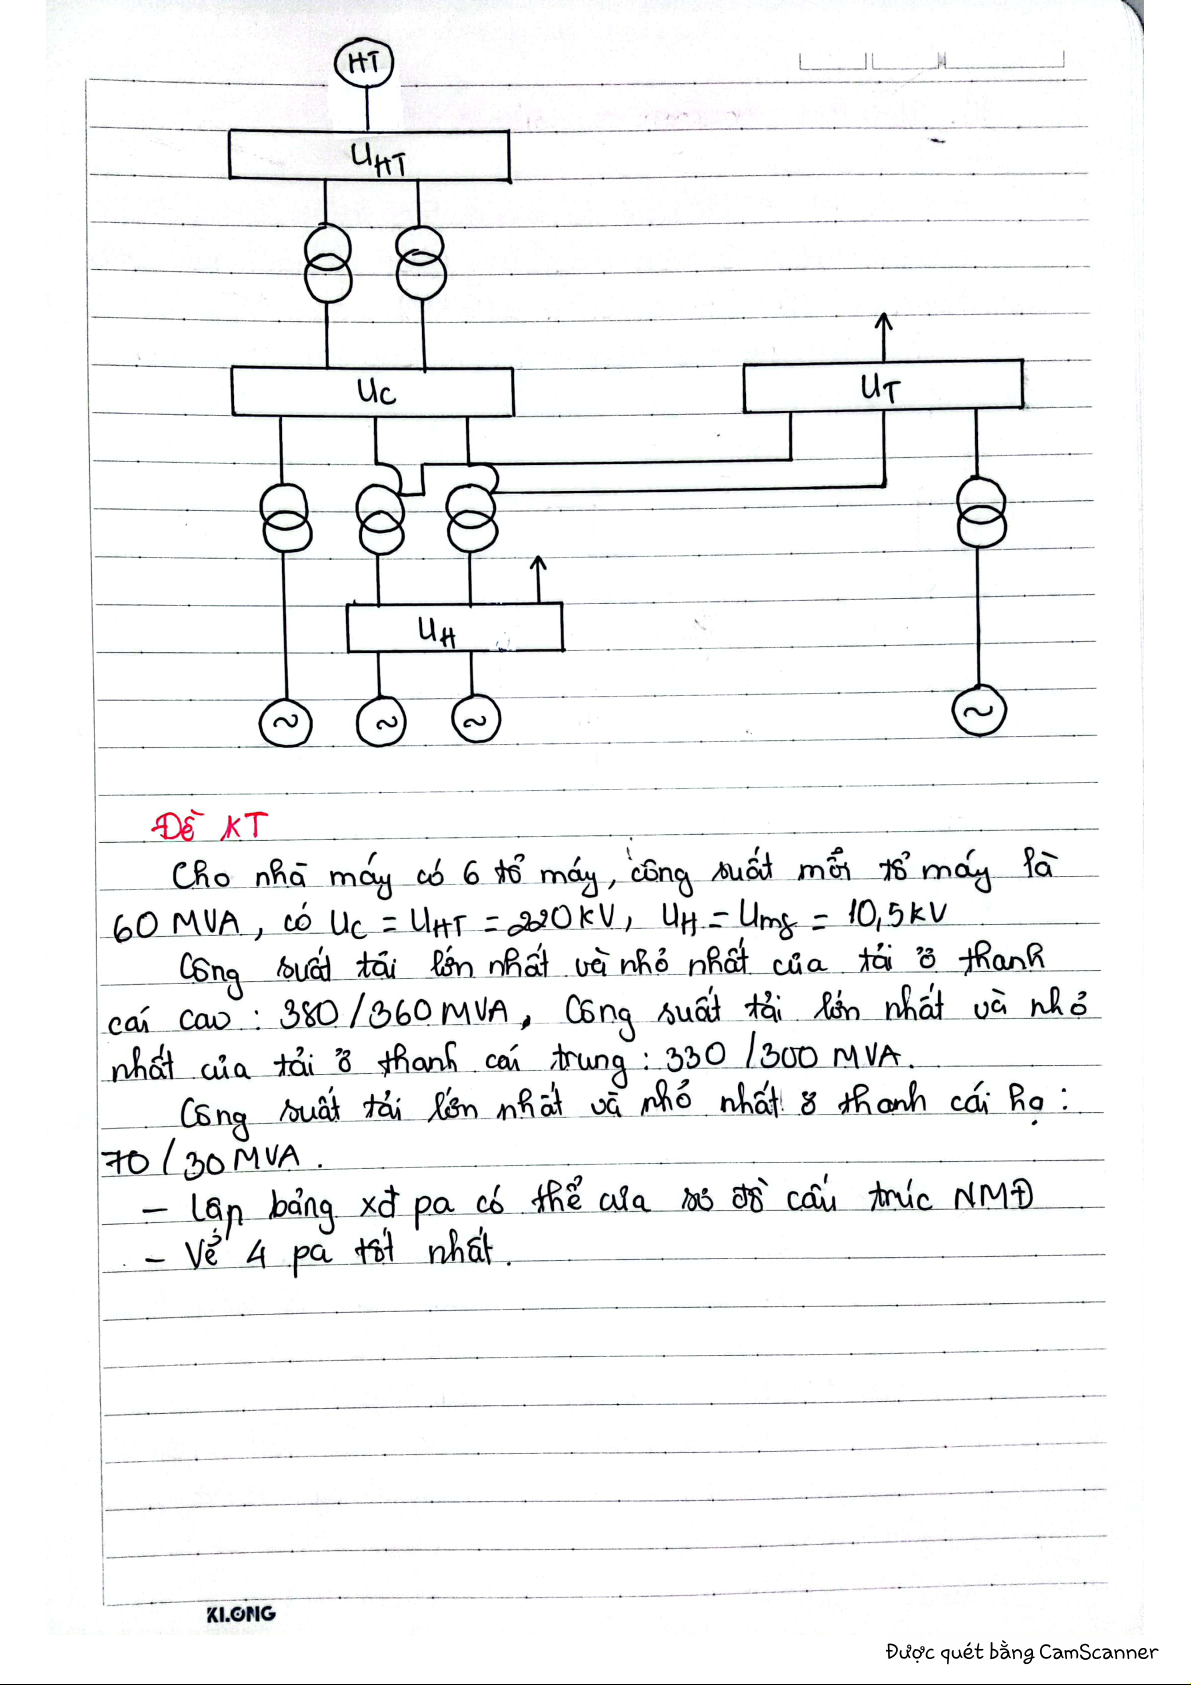 HT
UHT
UC
UT
UH
~
~
~
~
Đề KT
Cho nhà máy có 6 tổ máy, công suất mỗi tổ máy là
60 MVA, có UC = UHT = 220KV, UH = Umf = 10,5KV
Công suất tải lớn nhất và nhỏ nhất của tải ở thanh
cái cao : 380/360 MVA, Công suất tải lớn nhất và nhỏ
nhất của tải ở thanh cái trung : 330/300 MVA.
Công suất tải lớn nhất và nhỏ nhất ở thanh cái hạ :
70/30 MVA.
– Lập bảng xđ pa có thể của sơ đồ cấu trúc NMĐ
– Vẽ 4 pa tốt nhất.
KLONG
Được quét bằng CamScanner